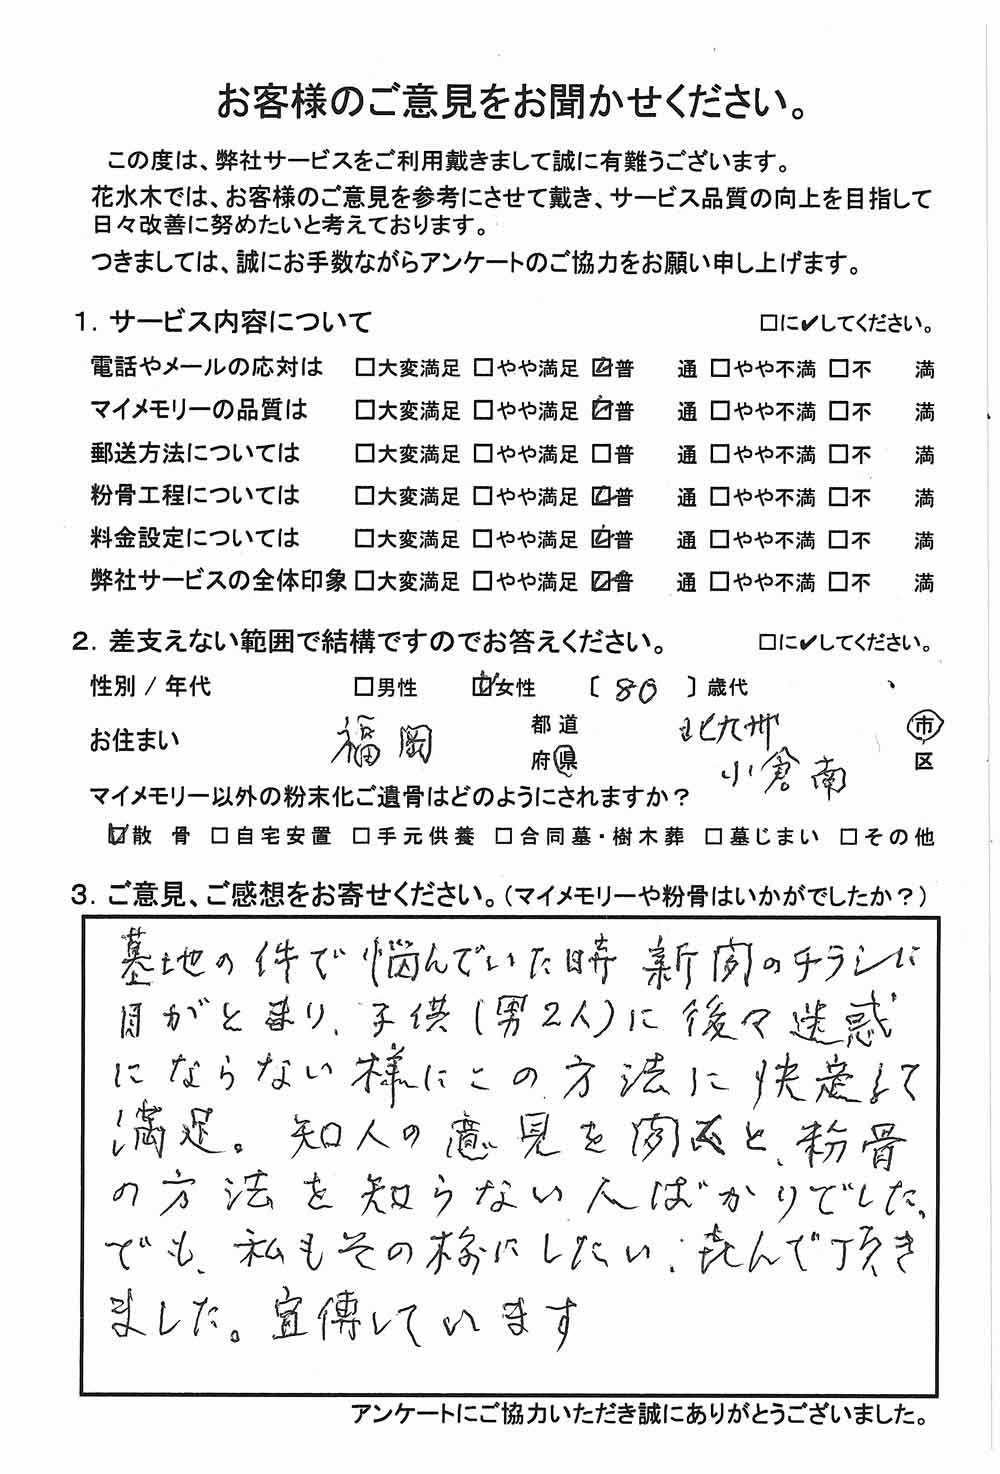 お客様のご意見をお聞かせください。
この度は、弊社サービスをご利用戴きまして誠に有難うございます。
花水木では、お客様のご意見を参考にさせて戴き、サービス品質の向上を目指して
日々改善に努めたいと考えております。
つきましては、誠にお手数ながらアンケートのご協力をお願い申し上げます。
1. サービス内容について □に✔してください。
電話やメールの応対は □大変満足 □やや満足 ☑普 通 □やや不満 □不 満
マイメモリーの品質は □大変満足 □やや満足 ☑普 通 □やや不満 □不 満
郵送方法については □大変満足 □やや満足 □普 通 □やや不満 □不 満
粉骨工程については □大変満足 □やや満足 ☑普 通 □やや不満 □不 満
料金設定については □大変満足 □やや満足 ☑普 通 □やや不満 □不 満
弊社サービスの全体印象 □大変満足 □やや満足 ☑普 通 □やや不満 □不 満
2. 差支えない範囲で結構ですのでお答えください。 □に✔してください。
性別 / 年代 □男性 ☑女性 〔 80 〕歳代
お住まい 福岡 都道府県 北九州 小倉南 市区
マイメモリー以外の粉末化ご遺骨はどのようにされますか？
☑散 骨 □自宅安置 □手元供養 □合同墓・樹木葬 □墓じまい □その他
3. ご意見、ご感想をお寄せください。（マイメモリーや粉骨はいかがでしたか？）
墓地の件で悩んでいた時 新聞のチラシに
目がとまり、子供(男2人)に後々迷惑
にならない様にこの方法に決定して
満足。知人の意見を聞くと、粉骨
の方法を知らない人ばかりでした、
でも、私もその様にしたい、喜んで頂き
ました。宣傳しています
アンケートにご協力いただき誠にありがとうございました。